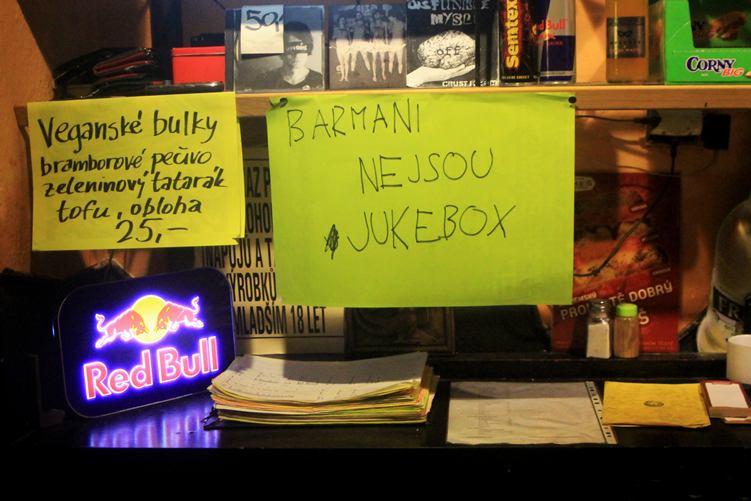 50,-
DISFUNKCE
MYSLI
OFF
CRUST
Semtex
Red Bull
CORNY
BIG
Veganské bulky
bramborové pečivo
zeleninový tatarák
tofu, obloha
25,-
BARMANI
NEJSOU
JUKEBOX
NÁPOJŮ A T
VÝROBKŮ
MLADŠÍM 18 LET
Red Bull
DOBRÝ